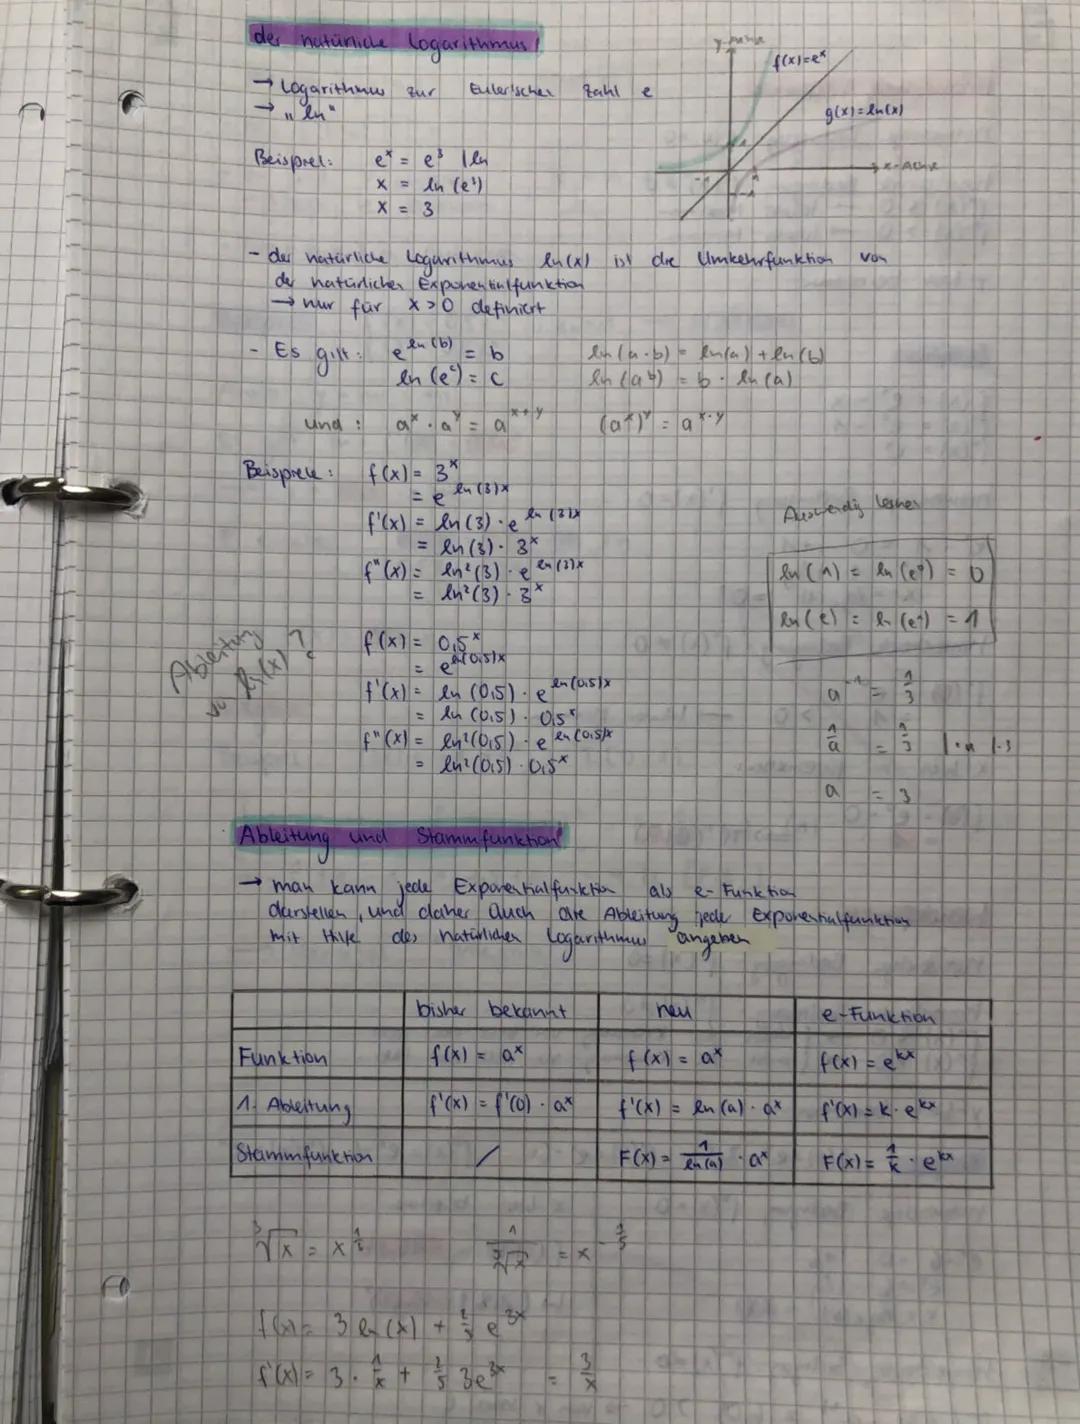 der natürliche Logarithmus!
y-Achse
f(x)=eˣ
g(x)=ln(x)
x-Achse
-1
1
-1
→ Logarithmus zur Eulerschen Zahl e
→ „ln"
Beispiel: eˣ = e³ | ln
x = ln (e³)
x = 3
- der natürliche Logarithmus ln(x) ist die Umkehrfunktion von
der natürlichen Exponentialfunktion
→ nur für x > 0 definiert
- Es gilt: e^ln(b) = b ln(a·b) = ln(a) + ln(b)
ln (e^c) = c ln(a^b) = b · ln(a)
und: aˣ · a^y = a^x+y (aˣ)^y = a^x·y
Beispiele: f(x) = 3ˣ
= e^ln(3)x
f'(x) = ln(3) · e^ln(3)x
= ln(3) · 3ˣ
f"(x) = ln²(3) · e^ln(3)x
= ln²(3) · 3ˣ
Auswendig lernen
ln(1) = ln(e⁰) = 0
ln(e) = ln(e¹) = 1
Ableitung
ln(x)?
f(x) = 0,5ˣ
= e^ln(0,5)x
f'(x) = ln(0,5) · e^ln(0,5)x
= ln(0,5) · 0,5ˣ
f"(x) = ln²(0,5) · e^ln(0,5)x
= ln²(0,5) · 0,5ˣ
a⁻¹ = 1/3
1/a = 1/3 |·a |·3
a = 3
Ableitung und Stammfunktion!
→ man kann jede Exponentialfunktion als e-Funktion
darstellen, und daher auch die Ableitung jeder Exponentialfunktion
mit Hilfe des natürlichen Logarithmus angeben
bisher bekannt neu e-Funktion
Funktion f(x) = aˣ f(x) = aˣ f(x) = e^kx
1. Ableitung f'(x) = f'(0) · aˣ f'(x) = ln(a) · aˣ f'(x) = k · e^kx
Stammfunktion / F(x) = 1/ln(a) · aˣ F(x) = 1/k · e^kx
³√x = x^1/3 1/³√x = x^-1/3
f(x) = 3 ln(x) + 2/5 e^3x
f'(x) = 3 · 1/x + 2/5 3e^3x = 3/x